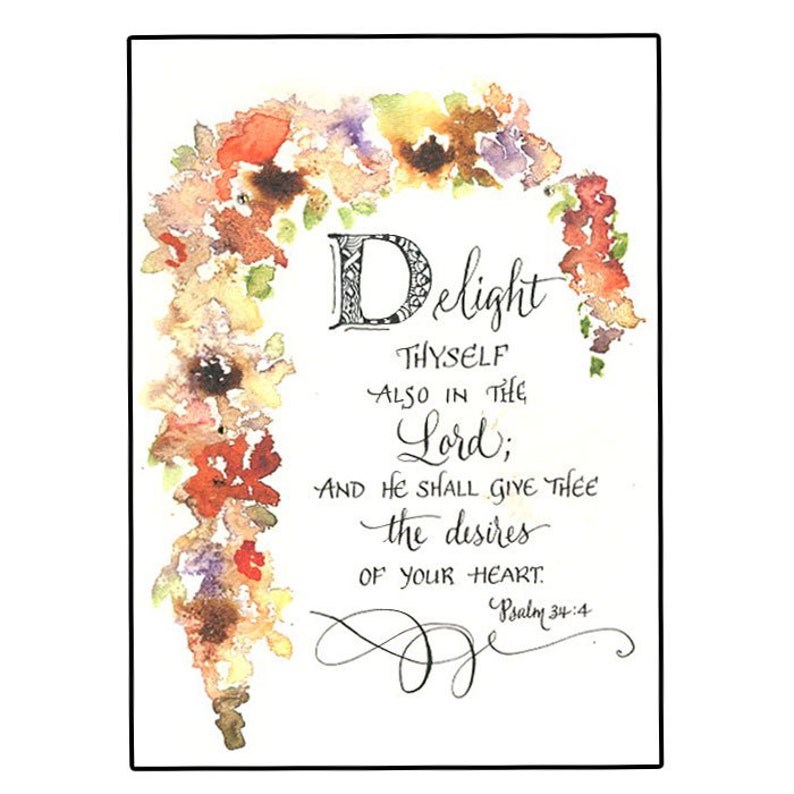 Delight
THYSELF
ALSO IN THE
Lord;
AND HE SHALL GIVE THEE
the desires
OF YOUR HEART.
Psalm 34:4